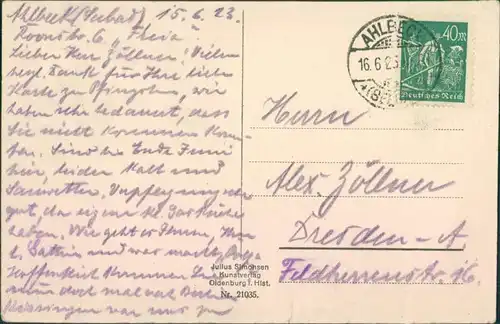 Ahlbeck (Seebad) 15.6.23.
Roonstr. 6 „Thea“
Lieber Herr Zöllner! Vielen
herzl. Dank für Ihre liebe
Karte zu Pfingsten, wir
haben sehr bedauert, dass
Sie nicht kommen konn-
ten. Sind bis Ende Juni
hier, leider kalt und
Sauwetter. Verpflegung sehr
gut, da eigene
haben. Wie geht es Ihnen, Ihrer
l. Gattin und was macht
Hoffentlich kommen Sie
nun doch mal nach Berlin
war nur zu
AHLBECK
16.6.23
40 M
Deutsches Reich
Herrn
Alex. Zöllner
Dresden-A.
Feldherrenstr. 16.
Julius Simonsen
Kunstverlag
Oldenburg i. Hlst.
Nr. 21035.